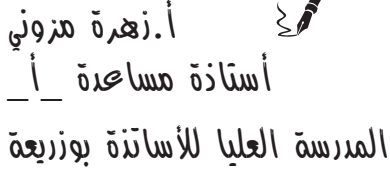 أ.زهرة مزوني
أستاذة مساعدة _أ_
المدرسة العليا للأساتذة بوزريعة